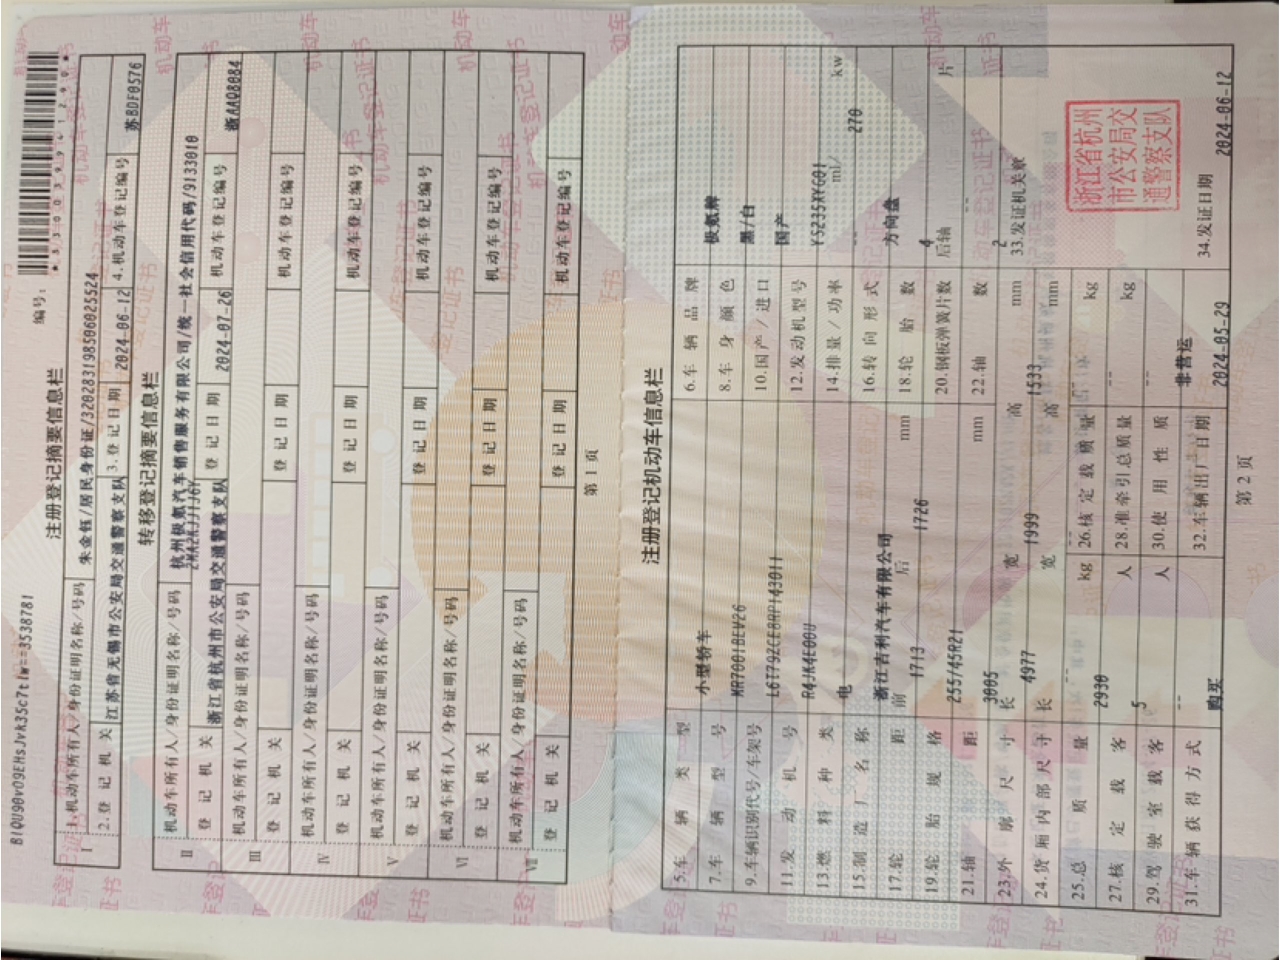 B1QU90vO9EHsJvk35c7tlw==3538781
编号：
注册登记摘要信息栏
I
1.机动车所有人/身份证明名称/号码 朱金钰/居民身份证/320283198506025524
2.登记机关 江苏省无锡市公安局交通警察支队 3.登记日期 2024-06-12 4.机动车登记编号 苏BDF0576
转移登记摘要信息栏
II
机动车所有人/身份证明名称/号码 杭州极氪汽车销售服务有限公司/统一社会信用代码/9133010
2MA2KJJ1J6Y
登记机关 浙江省杭州市公安局交通警察支队 登记日期 2024-07-26 机动车登记编号 浙AAQ8084
III
机动车所有人/身份证明名称/号码
登记机关 登记日期 机动车登记编号
IV
机动车所有人/身份证明名称/号码
登记机关 登记日期 机动车登记编号
V
机动车所有人/身份证明名称/号码
登记机关 登记日期 机动车登记编号
VI
机动车所有人/身份证明名称/号码
登记机关 登记日期 机动车登记编号
VII
机动车所有人/身份证明名称/号码
登记机关 登记日期 机动车登记编号
第 1 页
注册登记机动车信息栏
5.车辆类型 小型轿车 6.车辆品牌 极氪牌
7.车辆型号 MR7001BEV26 8.车身颜色 黑/白
9.车辆识别代号/车架号 L6T79ZCE8RP143011 10.国产/进口 国产
11.发动机号 R4JK4E00U 12.发动机型号 YS235XYG01
13.燃料种类 电 14.排量/功率 -- ml/ 270 kw
15.制造厂名称 浙江吉利汽车有限公司 16.转向形式 方向盘
17.轮距 前 1713 后 1726 mm 18.轮胎数 4
19.轮胎规格 255/45R21 20.钢板弹簧片数 后轴 -- 片
21.轴距 3005 mm 22.轴数 2
23.外廓尺寸 长 4977 宽 1999 高 1533 mm 33.发证机关章
24.货厢内部尺寸 长 -- 宽 -- 高 -- mm
浙江省杭州
市公安局交
通警察支队
25.总质量 2930 kg 26.核定载质量 -- kg
27.核定载客 5 人 28.准牵引总质量 -- kg
29.驾驶室载客 -- 人 30.使用性质 非营运
31.车辆获得方式 购买 32.车辆出厂日期 2024-05-29 34.发证日期 2024-06-12
第 2 页